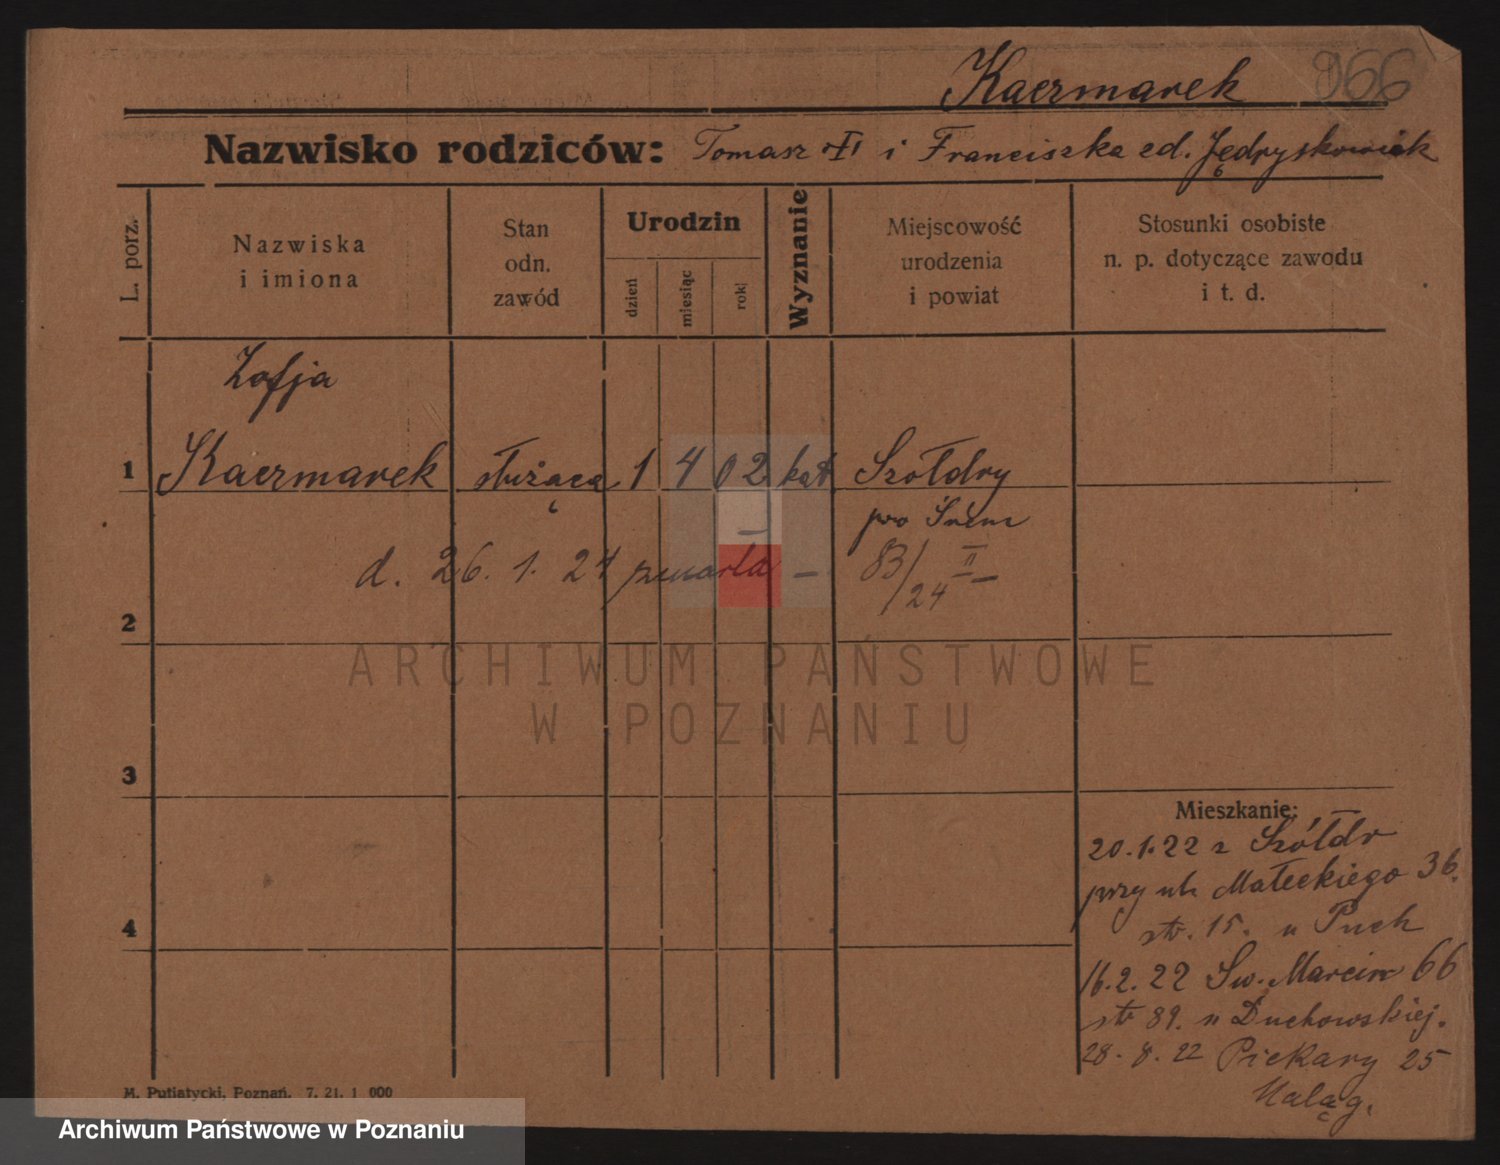 Kaczmarek 966
Nazwisko rodziców: Tomasz i Franciszka cd. Jędryskowiak
L. porz.
Nazwiska
i imiona
Stan
odn.
zawód
Urodzin
dzień
miesiąc
rok
Wyznanie
Miejscowość
urodzenia
i powiat
Stosunki osobiste
n. p. dotyczące zawodu
i t. d.
Zofja
1 Kaczmarek służąca 1 4 02 kat. Szołdry
po Śrem
d. 26. 1. 24 zmarła – 83/24 II –
2
ARCHIWUM PAŃSTWOWE
W POZNANIU
3
4
Mieszkanie:
20.1.22 z Szółdr
przy ul. Małeckiego 36.
str. 15. u Puch
16.2.22 Św. Marcin 66
str 89. u Duchowskiej.
28.8.22 Piekary 25
M. Putiatycki, Poznań. 7. 21. 1 000
Archiwum Państwowe w Poznaniu